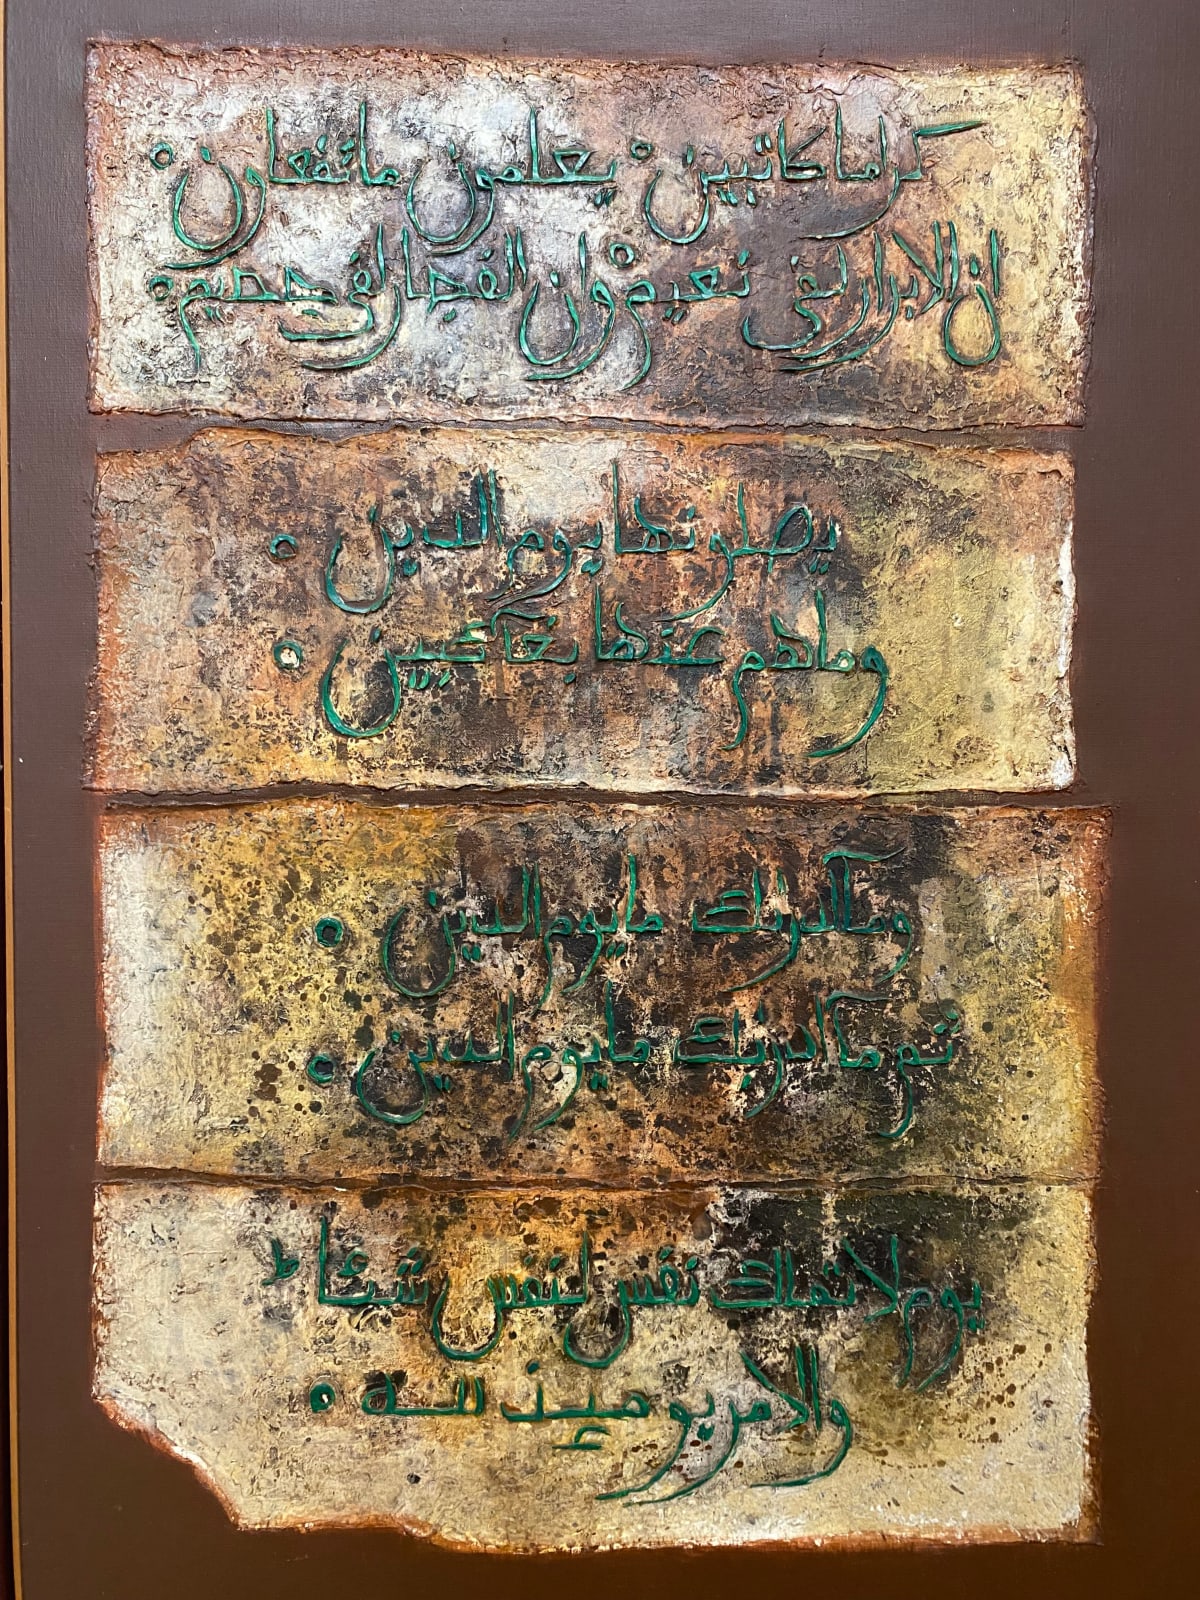 كراما كاتبين ٥ يعلمون ما تفعلون ٥
ان الابرار لفى نعيم ٥ وان الفجار لفى جحيم ٥
يصلونها يوم الدين ٥
وما هم عنها بغائبين ٥
وما ادرىك ما يوم الدين ٥
ثم ما ادرىك ما يوم الدين ٥
يوم لا تملك نفس لنفس شيئا ط
والامر يومئذ لله ٥